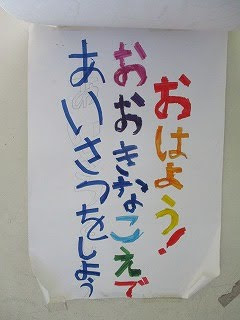 おはよう!
おおきなこえで
あいさつをしよう